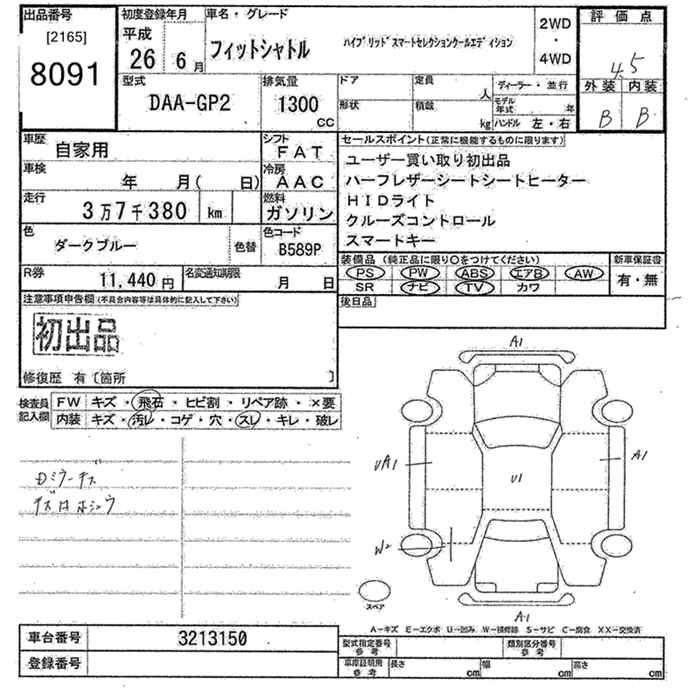 出品番号
[2165]
8091
初度登録年月
平成
26年 6月
車名・グレード
フィットシャトル ハイブリッドスマートセレクションクールエディション
2WD
・
4WD
評価点
4.5
外装 内装
B B
型式
DAA-GP2
排気量
1300
cc
ドア
定員
人
形状
積載
kg
ディーラー・並行
モデル年式 年
ハンドル 左・右
車歴
自家用
シフト
FAT
車検
年 月( 日)
冷房
AAC
走行
3万7千380 km
燃料
ガソリン
色
ダークブルー
色替
色コード
B589P
R券
11,440円
名変通知期限
月 日
セールスポイント(正常に機能するものに限ります)
ユーザー買い取り初出品
ハーフレザーシートシートヒーター
HIDライト
クルーズコントロール
スマートキー
装備品(純正品に限り○をつけてください)
PS PW ABS エアB AW
SR ナビ TV カワ
新車保証書
有・無
後日品
注意事項申告欄(不具合内容等は具体的に記入して下さい)
初出品
修復歴 有〔箇所 〕
検査員記入欄
FW キズ・飛石・ヒビ割・リペア跡・×要
内装 キズ・汚レ・コゲ・穴・スレ・キレ・破レ
A1
UA1
U1
A1
W2
A1
スペア
A-キズ E-エクボ U-凹み W-補修跡 S-サビ C-腐食 XX-交換済
車台番号
3213150
登録番号
型式指定番号
参考
類別区分番号
参考
車庫証明用
参考
長さ cm
幅 cm
高さ cm